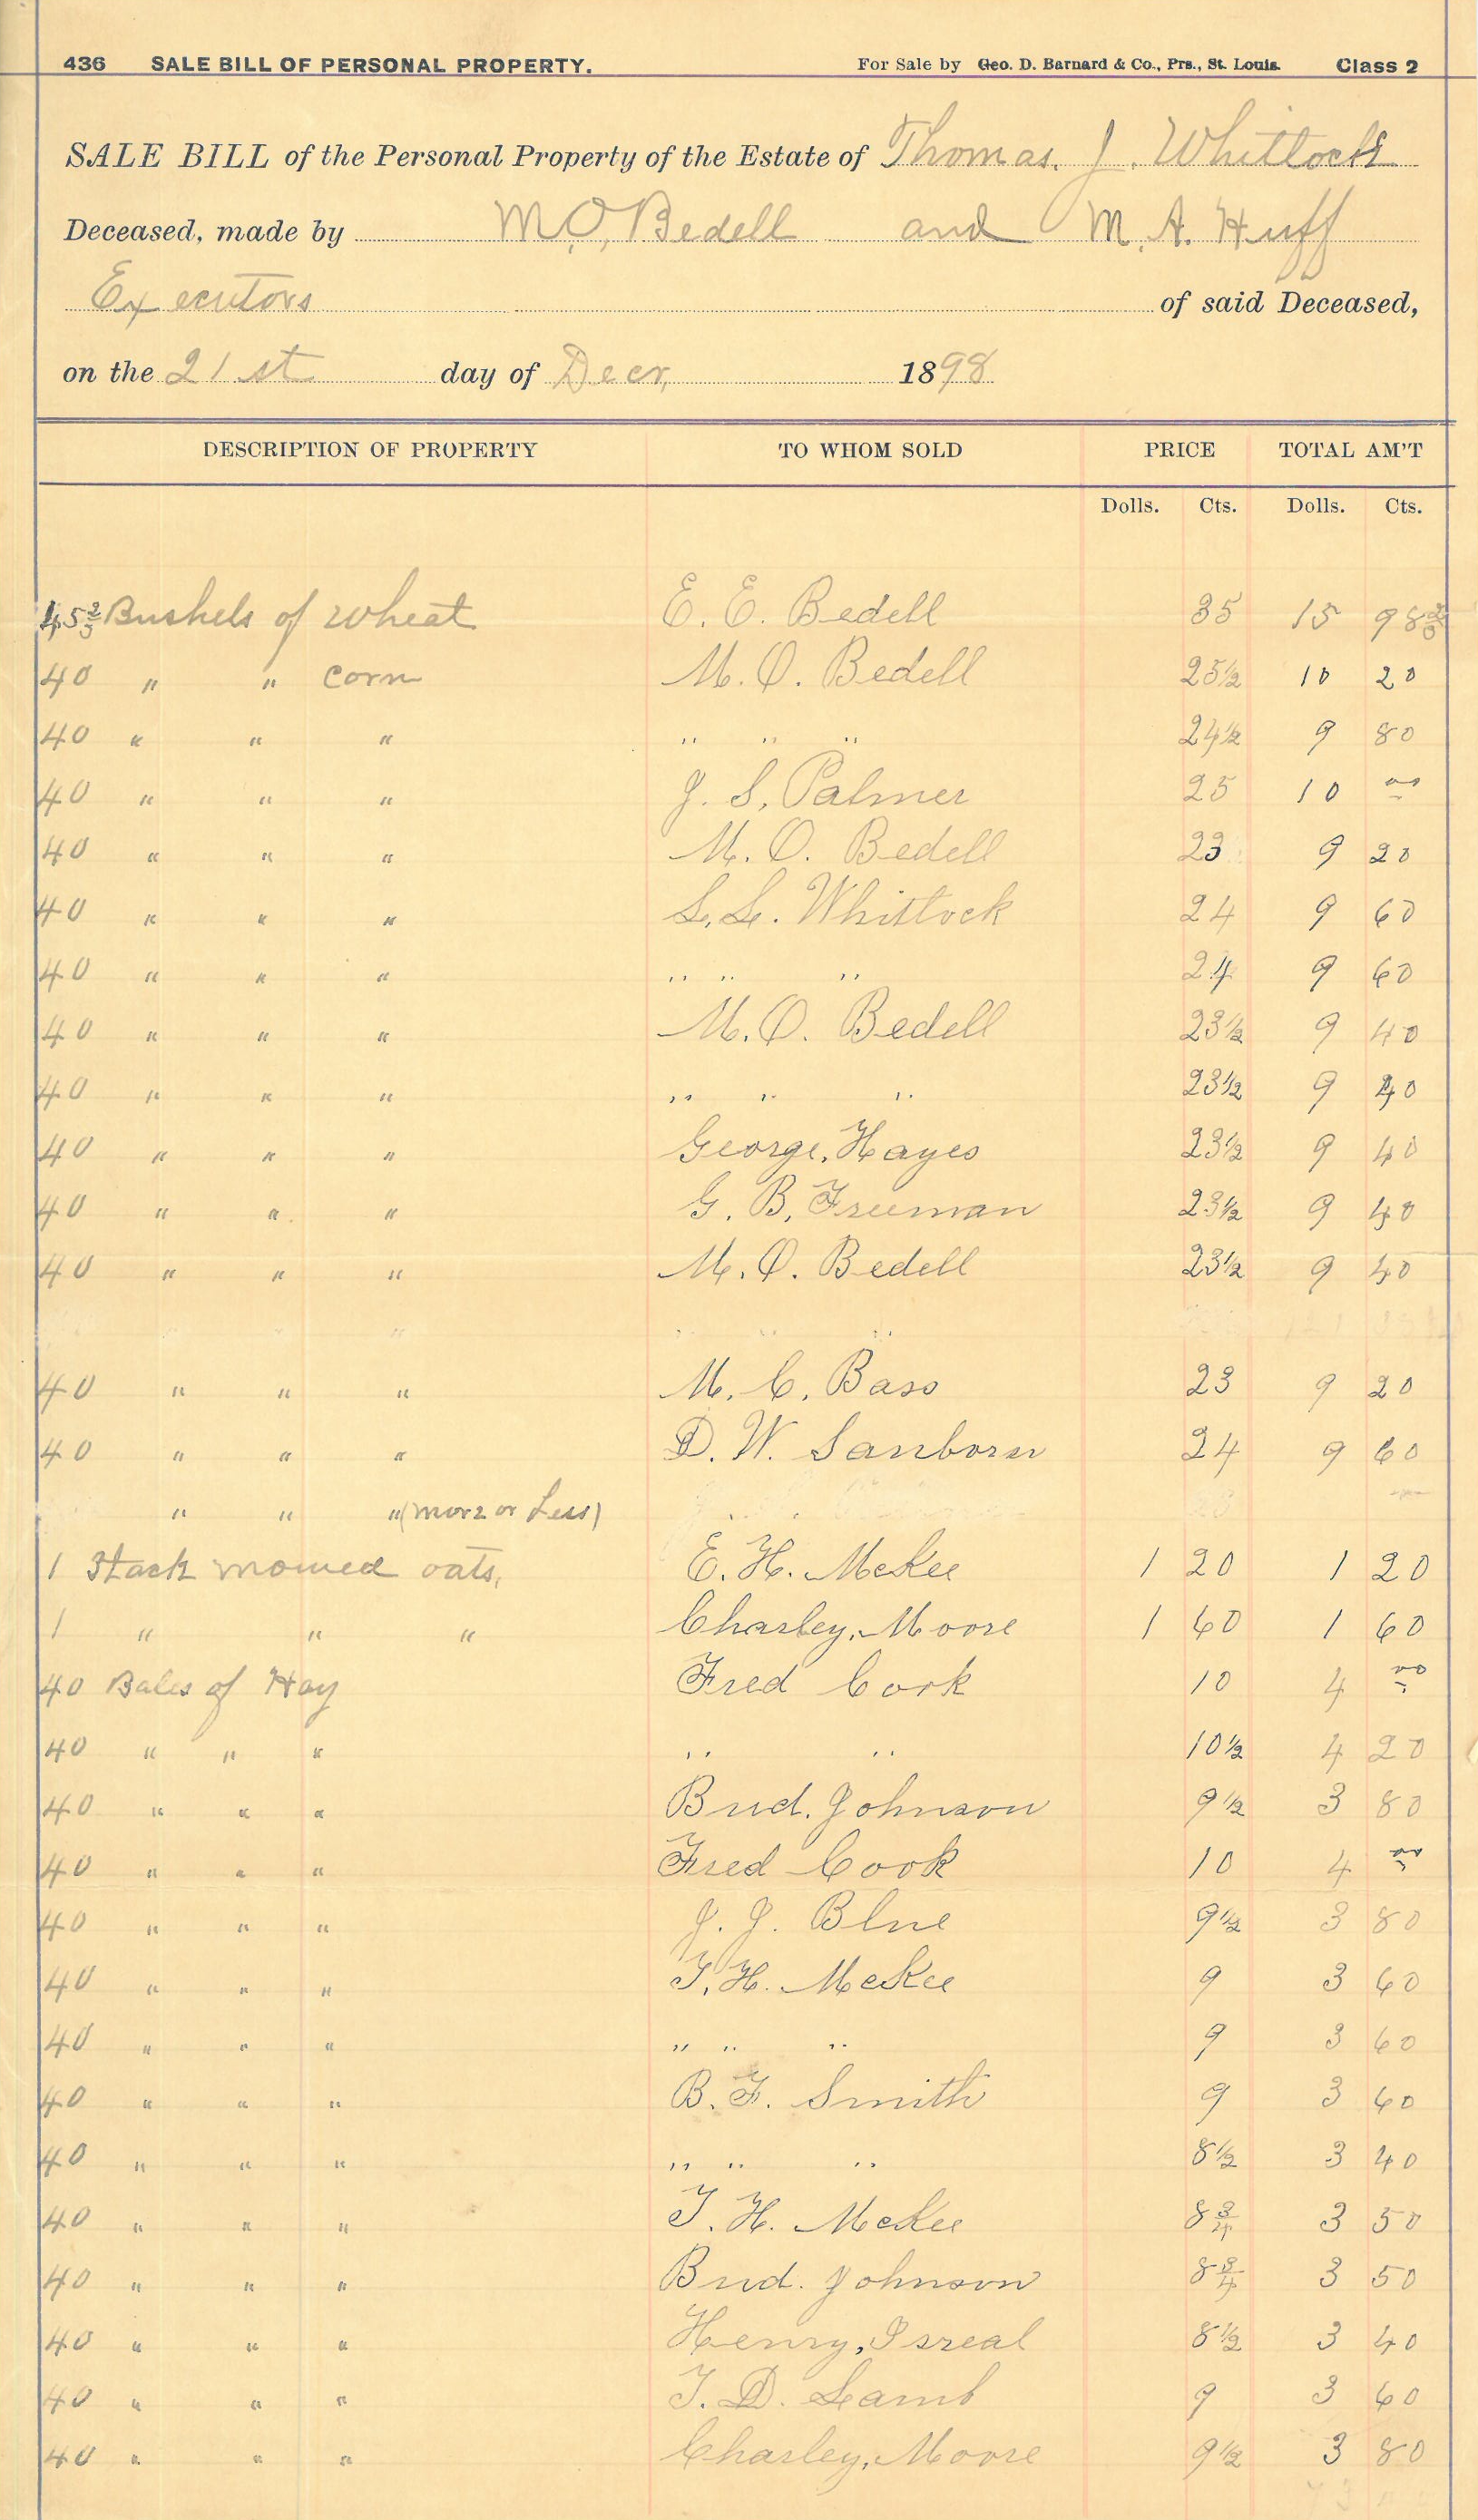 436 SALE BILL OF PERSONAL PROPERTY. For Sale by Geo. D. Barnard & Co., Prs., St. Louis. Class 2
SALE BILL of the Personal Property of the Estate of Thomas. J. Whitlock
Deceased, made by M.O. Bedell and M. A. Huff
Executors of said Deceased,
on the 21st day of Decr, 1898
DESCRIPTION OF PROPERTY TO WHOM SOLD PRICE TOTAL AM'T
Dolls. Cts. Dolls. Cts.
45 2/3 Bushels of wheat E. E. Bedell 35 15 98
40 " " corn M. O. Bedell 25½ 10 20
40 " " " " " " 24½ 9 80
40 " " " J. S. Palmer 25 10 00
40 " " " M. O. Bedell 23 9 20
40 " " " S. L. Whitlock 24 9 60
40 " " " " " " 24 9 60
40 " " " M. O. Bedell 23½ 9 40
40 " " " " " " 23½ 9 40
40 " " " George. Hayes 23½ 9 40
40 " " " G. B. Freeman 23½ 9 40
40 " " " M. O. Bedell 23½ 9 40
" " " "
40 " " " M. C. Bass 23 9 20
40 " " " D. W. Sanborn 24 9 60
" " " (more or Less)
1 Stack mowed oats, E. H. McKee 1 20 1 20
1 " " " Charley. Moore 1 60 1 60
40 Bales of Hay Fred Cook 10 4 00
40 " " " " " 10½ 4 20
40 " " " Bud. Johnson 9½ 3 80
40 " " " Fred Cook 10 4 00
40 " " " J. J. Blue 9½ 3 80
40 " " " T. H. McKee 9 3 60
40 " " " " " " 9 3 60
40 " " " B. F. Smith 9 3 60
40 " " " " " " 8½ 3 40
40 " " " T. H. McKee 8¾ 3 50
40 " " " Bud. Johnson 8¾ 3 50
40 " " " Henry, Isreal 8½ 3 40
40 " " " T. D. Lamb 9 3 60
40 " " " Charley, Moore 9½ 3 80